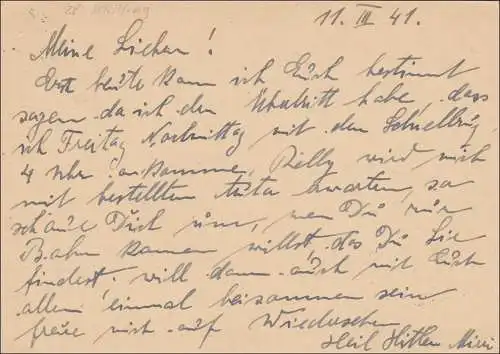 11. III 41.
Meine Lieben!
Erst heute kann ich Euch bestimmt
sagen da ich den habe, dass
ich Freitag Nachmittag mit dem Schnellzug
4 Uhr ankomme, wird mich
mit bestellten Auto warten, so
schaue Dich um, wen Du zur
Bahn kommen willst, das Du Sie
findest. will dann auch mit Euch
allen einmal beisammen sein
freue mich auf Wiedersehen
Heil Hitler